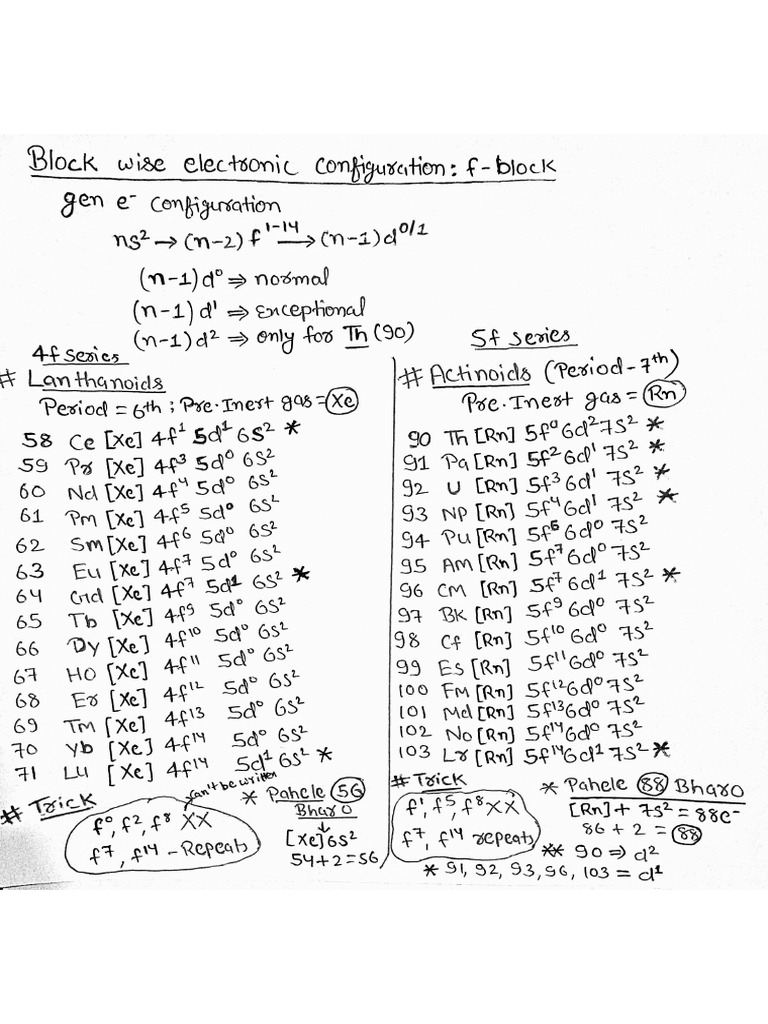 Block wise electronic configuration: f-block
gen e⁻ configuration
ns² → (n-2) f¹⁻¹⁴ → (n-1) d⁰/¹
(n-1)d⁰ ⇒ normal
(n-1)d¹ ⇒ exceptional
(n-1)d² ⇒ only for Th (90)
4f series
# Lanthanoids
Period = 6th ; Pre. Inert gas = Xe
58 Ce [Xe] 4f¹ 5d¹ 6s² *
59 Pr [Xe] 4f³ 5d⁰ 6s²
60 Nd [Xe] 4f⁴ 5d⁰ 6s²
61 Pm [Xe] 4f⁵ 5d⁰ 6s²
62 Sm [Xe] 4f⁶ 5d⁰ 6s²
63 Eu [Xe] 4f⁷ 5d⁰ 6s²
64 Gd [Xe] 4f⁷ 5d¹ 6s² *
65 Tb [Xe] 4f⁹ 5d⁰ 6s²
66 Dy [Xe] 4f¹⁰ 5d⁰ 6s²
67 Ho [Xe] 4f¹¹ 5d⁰ 6s²
68 Er [Xe] 4f¹² 5d⁰ 6s²
69 Tm [Xe] 4f¹³ 5d⁰ 6s²
70 Yb [Xe] 4f¹⁴ 5d⁰ 6s²
71 Lu [Xe] 4f¹⁴ 5d¹ 6s² *
# Trick
can't be written
f⁰, f², f⁸ XX
f⁷, f¹⁴ - Repeats
* Pahele 56
Bharo
↓
[Xe] 6s²
54+2=56
5f series
# Actinoids (Period - 7th)
Pre. Inert gas = Rn
90 Th [Rn] 5f⁰ 6d² 7s² *
91 Pa [Rn] 5f² 6d¹ 7s² *
92 U [Rn] 5f³ 6d¹ 7s² *
93 Np [Rn] 5f⁴ 6d¹ 7s² *
94 Pu [Rn] 5f⁶ 6d⁰ 7s²
95 Am [Rn] 5f⁷ 6d⁰ 7s²
96 Cm [Rn] 5f⁷ 6d¹ 7s² *
97 Bk [Rn] 5f⁹ 6d⁰ 7s²
98 Cf [Rn] 5f¹⁰ 6d⁰ 7s²
99 Es [Rn] 5f¹¹ 6d⁰ 7s²
100 Fm [Rn] 5f¹² 6d⁰ 7s²
101 Md [Rn] 5f¹³ 6d⁰ 7s²
102 No [Rn] 5f¹⁴ 6d⁰ 7s²
103 Lr [Rn] 5f¹⁴ 6d¹ 7s² *
# Trick
f¹, f⁵, f⁸ XX
f⁷, f¹⁴ repeats
* Pahele 88 Bharo
[Rn] + 7s² = 88e⁻
86 + 2 = 88
** 90 ⇒ d²
* 91, 92, 93, 96, 103 = d¹